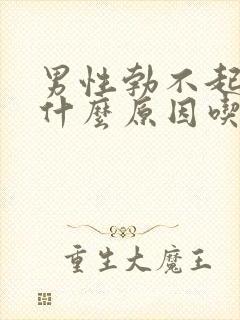 男性勃不起
什麼原因喫
重生大魔王